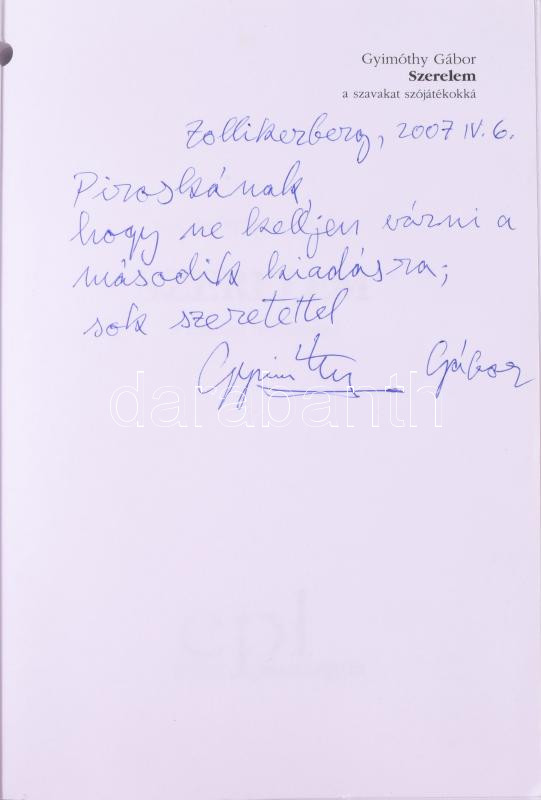 Gyimóthy Gábor
Szerelem
a szavakat szójátékokká
Zollikerberg, 2007 IV. 6.
Piroskának,
hogy ne kelljen várni a
második kiadásra;
sok szeretettel
Gyimóthy Gábor
darabanth
epl